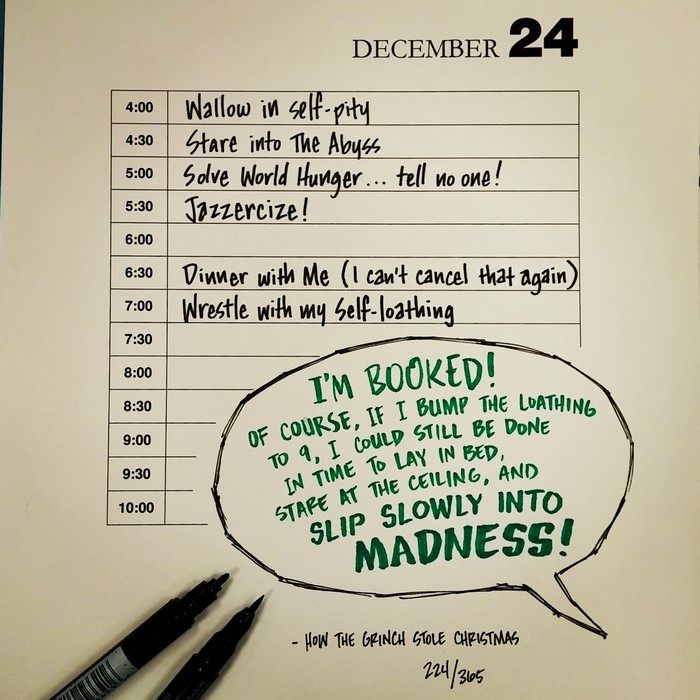 DECEMBER 24
4:00 Wallow in self-pity
4:30 Stare into The Abyss
5:00 Solve World Hunger... tell no one!
5:30 Jazzercize!
6:00
6:30 Dinner with Me (I can't cancel that again)
7:00 Wrestle with my Self-loathing
7:30
8:00
8:30
9:00
9:30
10:00
I'M BOOKED!
OF COURSE, IF I BUMP THE LOATHING
TO 9, I COULD STILL BE DONE
IN TIME TO LAY IN BED,
STARE AT THE CEILING, AND
SLIP SLOWLY INTO
MADNESS!
- HOW THE GRINCH STOLE CHRISTMAS
224/365